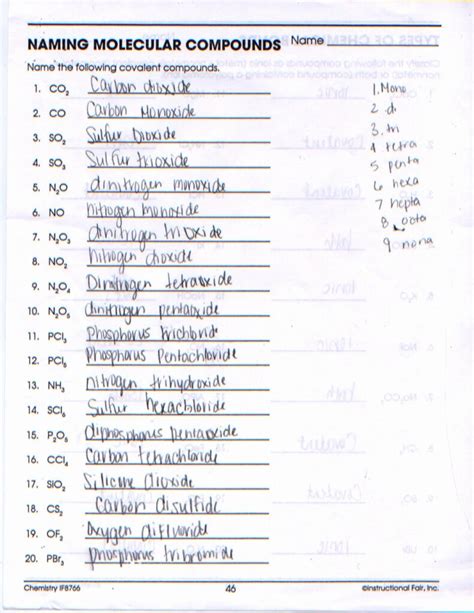 NAMING MOLECULAR COMPOUNDS Name
Name the following covalent compounds.
1. CO₂ Carbon dioxide
2. CO Carbon Monoxide
3. SO₂ Sulfur Dioxide
4. SO₃ Sulfur trioxide
5. N₂O dinitrogen monoxide
6. NO nitrogen monoxide
7. N₂O₃ dinitrogen trioxide
8. NO₂ nitrogen dioxide
9. N₂O₄ Dinitrogen tetraoxide
10. N₂O₅ dinitrogen pentaoxide
11. PCl₃ Phosphorus trichloride
12. PCl₅ Phosphorus Pentachloride
13. NH₃ nitrogen trihydroxide
14. SCl₆ Sulfur hexachloride
15. P₂O₅ diphosphorus pentaoxide
16. CCl₄ Carbon tetrachloride
17. SiO₂ Silicone Dioxide
18. CS₂ Carbon disulfide
19. OF₂ Oxygen difluoride
20. PBr₃ phosphorus tribromide
1. Mono
2. di
3. tri
4 tetra
5 penta
6 hexa
7 hepta
8 octa
9 nona
Chemistry IF8766 46 ©Instructional Fair, Inc.